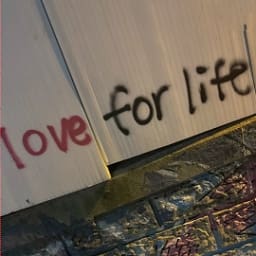 love for life